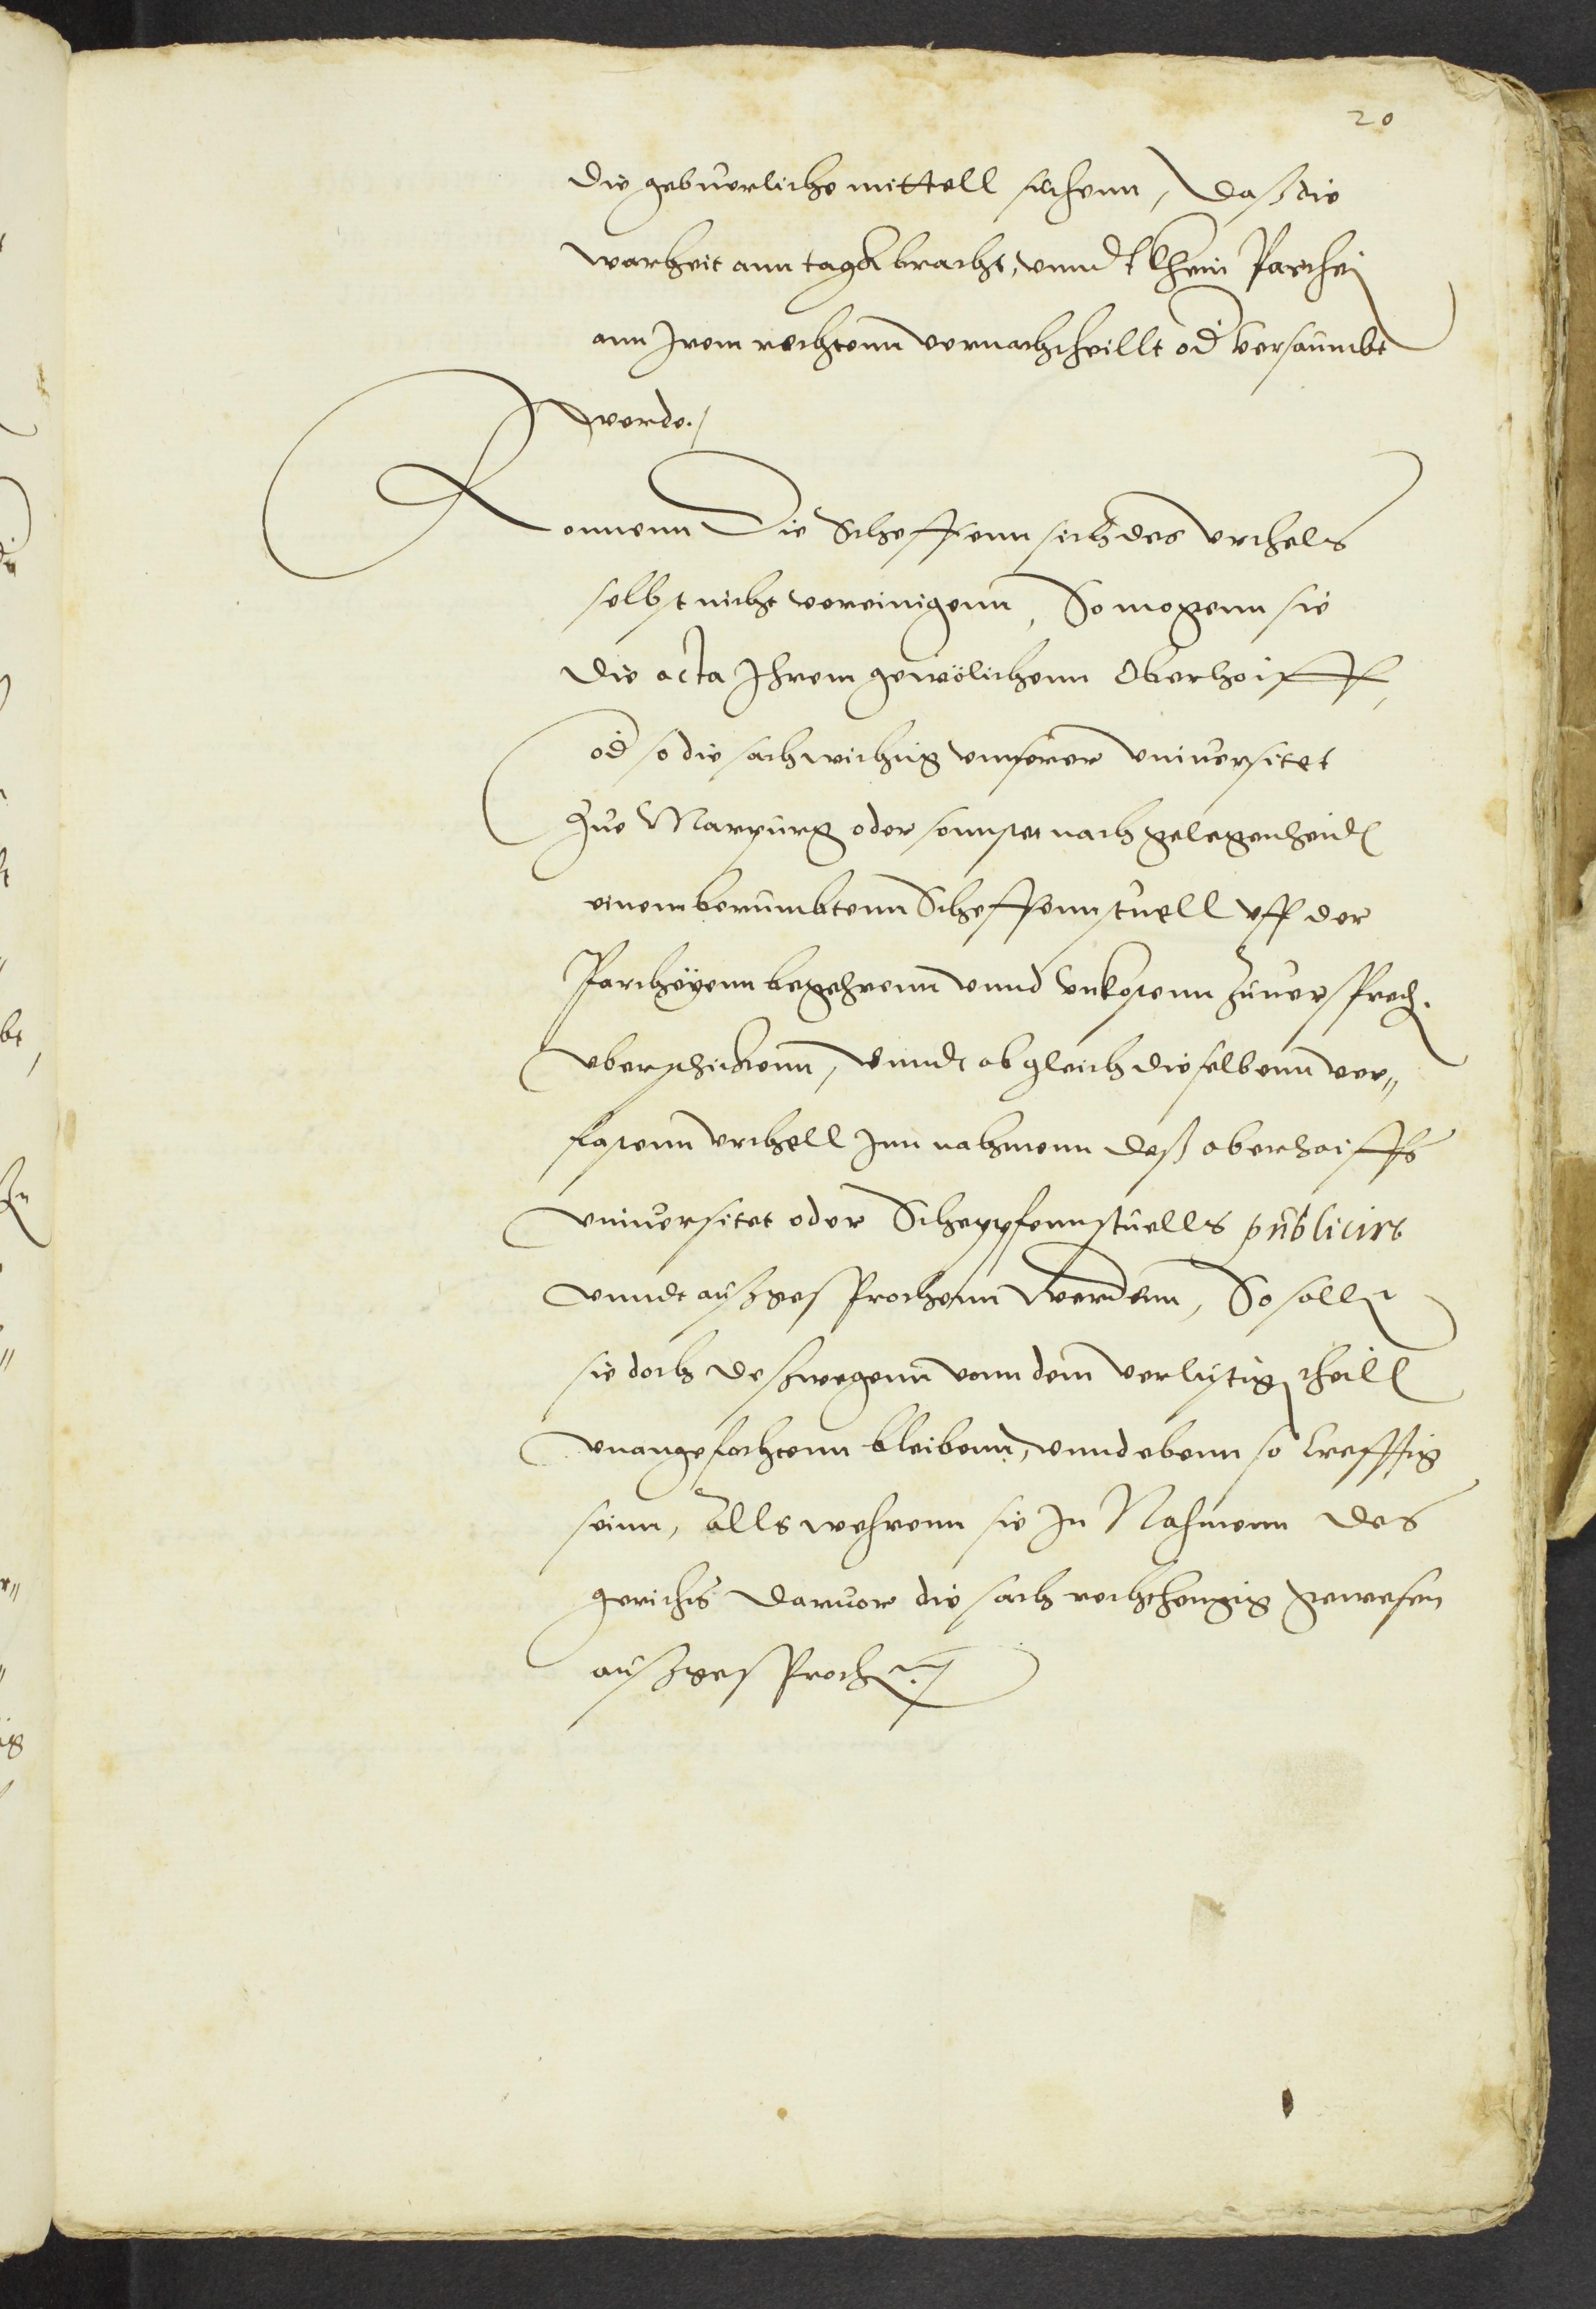 20
die geburliche mittell suchenn, daß die
warheit ann tagk bracht, vnndt khein Parthei
ann Irem rechtenn vernachtheillt od versaumbt
werde./
Konnenn Die Scheffenn sich des vrthels
selbst nicht vereinigenn, So mogenn sie
die acta Ihrem gewölichenn Oberhoiff,
od so die sach wichtig vnnserer vniuersitet
Zue Marpurg oder sonnsten nach gelegenheidt
einem berumbtenn Scheffennstuell vff der
Partheyenn begehrenn vnnd vnkostenn zuuersprech.
vberschickenn, vnndt ob gleich dieselbenn ver„
fastenn vrthell Inn nahmenn deß oberhoiffs
vniuersitet oder Scheppfennstuells publicirt
vnndt außgesprochenn werdenn, So solln
sie doch deßwegenn vonn dem verlustig theill
vnangefochtenn bleibenn, vnnd ebenn so krefftig
seinn, alls wehrenn sie In Nahmenn des
gerichts daruor die sach rechthengig gewesen
außgesprochn./